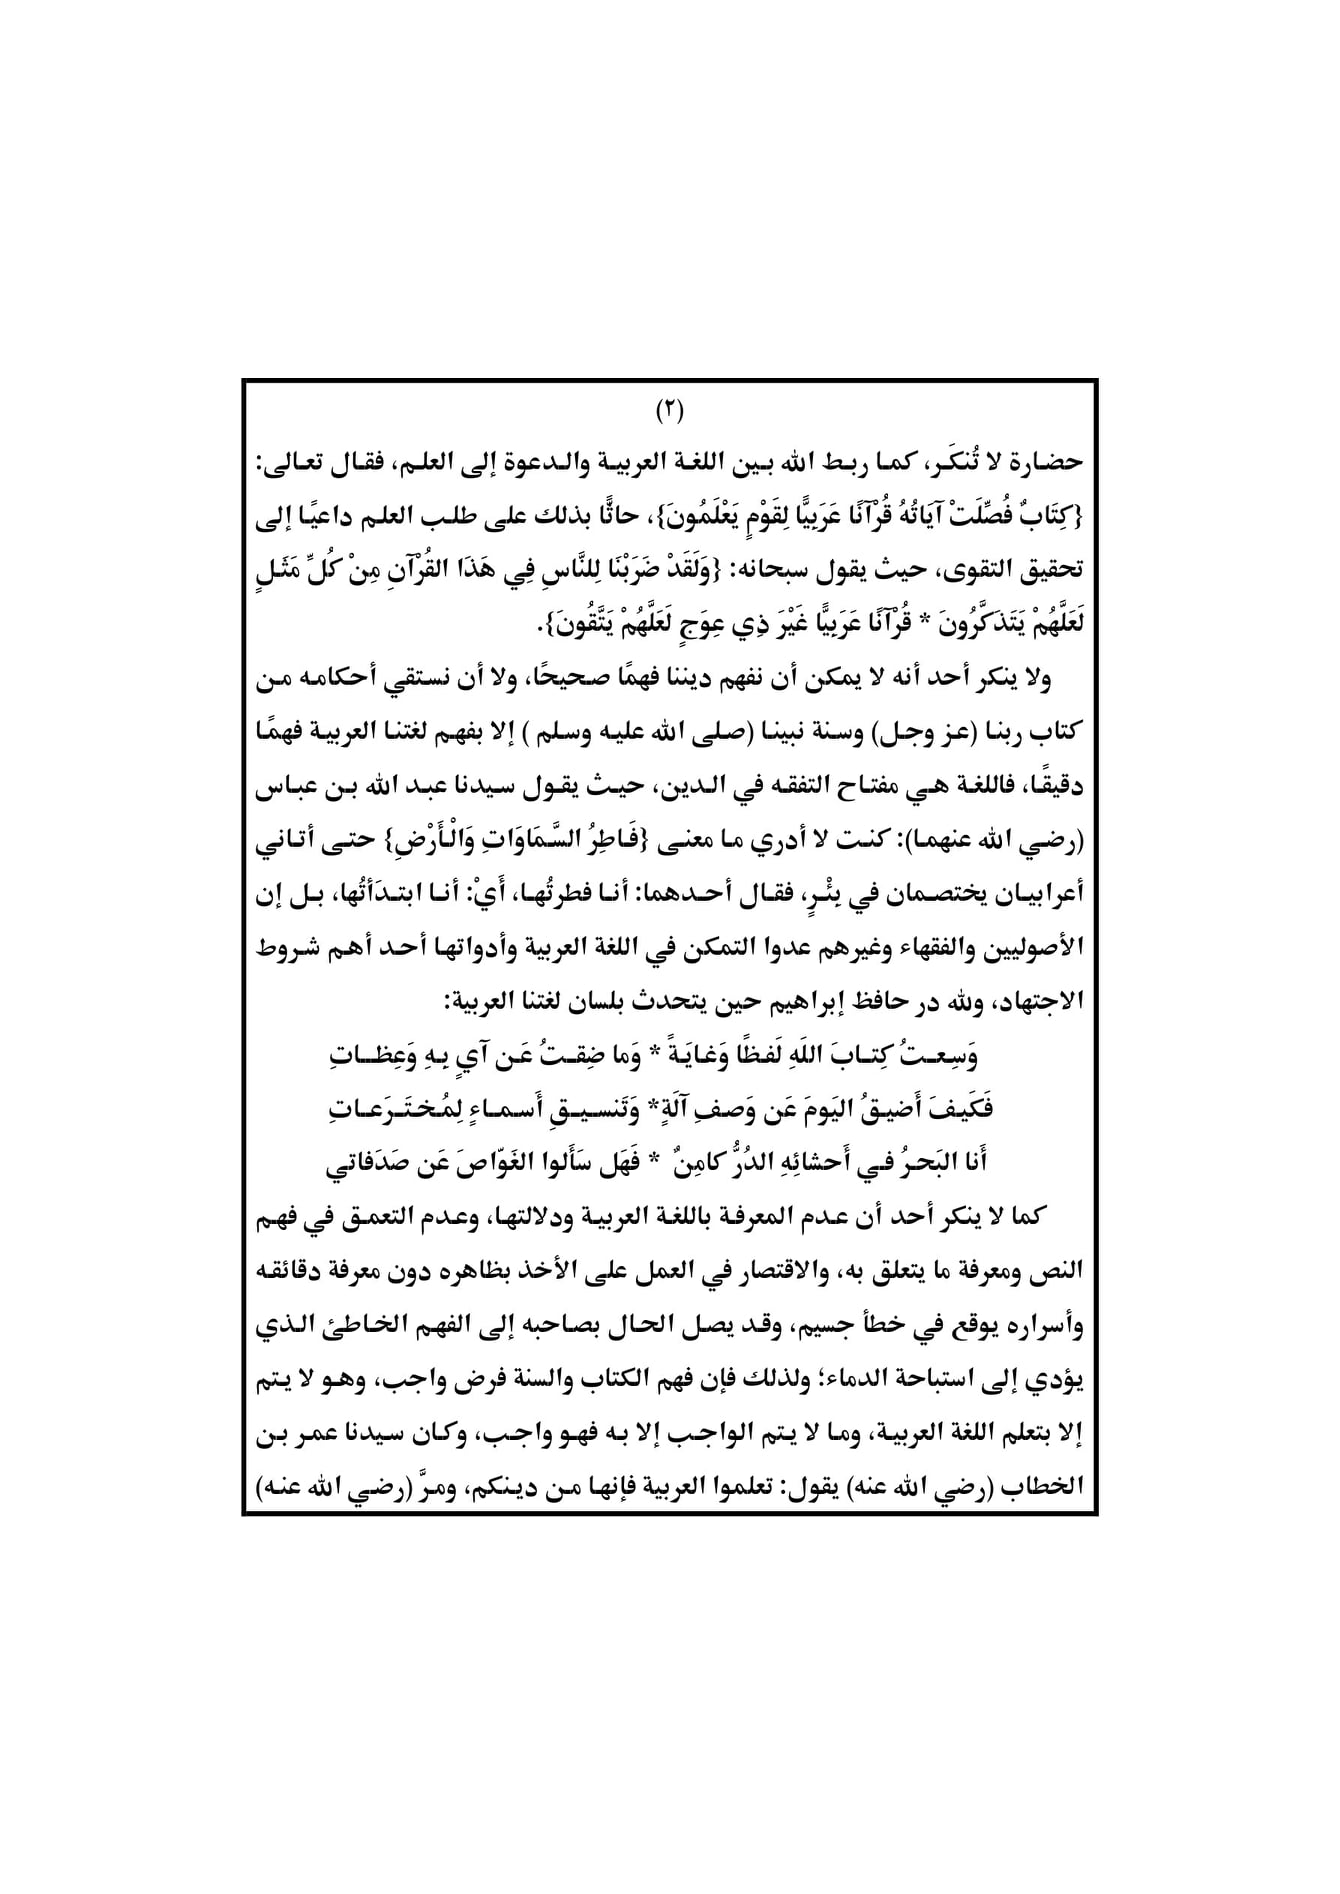 (٢)
حضارة لا تُنكَر، كما ربط الله بين اللغة العربية والدعوة إلى العلم، فقال تعالى:
{كِتَابٌ فُصِّلَتْ آيَاتُهُ قُرْآنًا عَرَبِيًّا لِقَوْمٍ يَعْلَمُونَ}، حاثًّا بذلك على طلب العلم داعيًا إلى
تحقيق التقوى، حيث يقول سبحانه: {وَلَقَدْ ضَرَبْنَا لِلنَّاسِ فِي هَذَا القُرْآنِ مِنْ كُلِّ مَثَلٍ
لَعَلَّهُمْ يَتَذَكَّرُونَ * قُرْآنًا عَرَبِيًّا غَيْرَ ذِي عِوَجٍ لَعَلَّهُمْ يَتَّقُونَ}.
ولا ينكر أحد أنه لا يمكن أن نفهم ديننا فهمًا صحيحًا، ولا أن نستقي أحكامه من
كتاب ربنا (عز وجل) وسنة نبينا (صلى الله عليه وسلم ) إلا بفهم لغتنا العربية فهمًا
دقيقًا، فاللغة هي مفتاح التفقه في الدين، حيث يقول سيدنا عبد الله بن عباس
(رضي الله عنهما): كنت لا أدري ما معنى {فَاطِرُ السَّمَاوَاتِ وَالْأَرْضِ} حتى أتاني
أعرابيان يختصمان في بِئْرٍ، فقال أحدهما: أنا فطرتُها، أَيْ: أنا ابتدَأتُها، بل إن
الأصوليين والفقهاء وغيرهم عدوا التمكن في اللغة العربية وأدواتها أحد أهم شروط
الاجتهاد، ولله در حافظ إبراهيم حين يتحدث بلسان لغتنا العربية:
وَسِعتُ كِتابَ اللَهِ لَفظًا وَغايَةً * وَما ضِقتُ عَن آيٍ بِهِ وَعِظاتِ
فَكَيفَ أَضيقُ اليَومَ عَن وَصفِ آلَةٍ* وَتَنسيقِ أَسماءٍ لِمُختَرَعاتِ
أَنا البَحرُ في أَحشائِهِ الدُرُّ كامِنٌ * فَهَل سَأَلوا الغَوّاصَ عَن صَدَفاتي
كما لا ينكر أحد أن عدم المعرفة باللغة العربية ودلالتها، وعدم التعمق في فهم
النص ومعرفة ما يتعلق به، والاقتصار في العمل على الأخذ بظاهره دون معرفة دقائقه
وأسراره يوقع في خطأ جسيم، وقد يصل الحال بصاحبه إلى الفهم الخاطئ الذي
يؤدي إلى استباحة الدماء؛ ولذلك فإن فهم الكتاب والسنة فرض واجب، وهو لا يتم
إلا بتعلم اللغة العربية، وما لا يتم الواجب إلا به فهو واجب، وكان سيدنا عمر بن
الخطاب (رضي الله عنه) يقول: تعلموا العربية فإنها من دينكم، ومرَّ (رضي الله عنه)